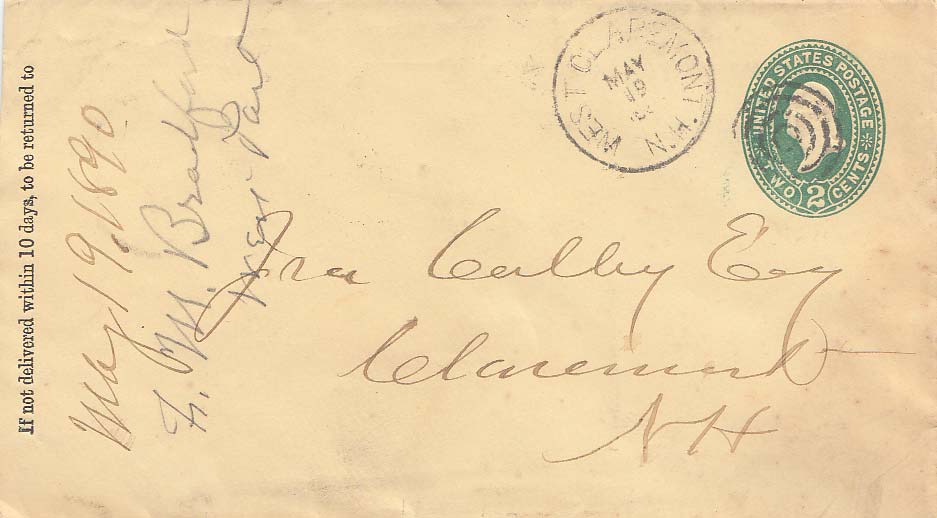 If not delivered within 10 days, to be returned to
May 19, 1890
M. Bradford
WEST CLAREMONT. N.H.
MAY
19
UNITED STATES POSTAGE
TWO 2 CENTS
Ira Colby Esq
Claremont
NH